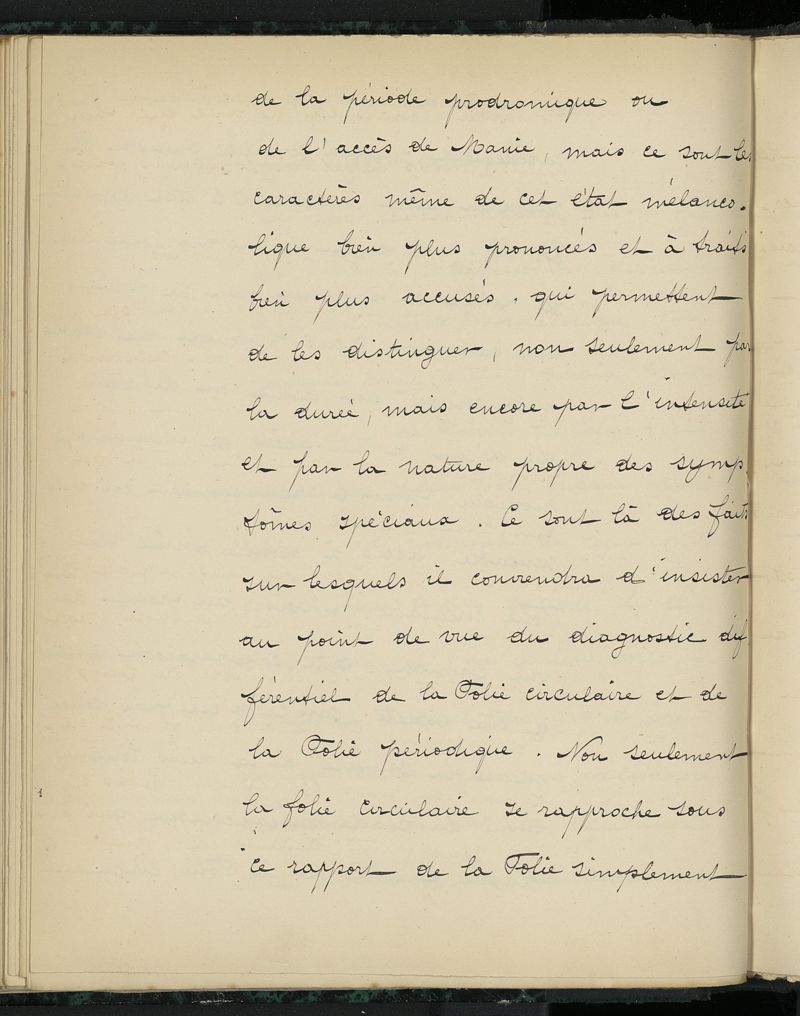 de la période prodromique ou
de l'accès de Manie, mais ce sont les
caractères même de cet état mélanco-
lique bien plus prononcés et à traits
bien plus accusés, qui permettent
de les distinguer, non seulement par
la durée, mais encore par l'intensité
et par la nature propre des symp-
tômes spéciaux. Ce sont là des faits
sur lesquels il conviendra d'insister
au point de vue du diagnostic dif-
férentiel de la Folie circulaire et de
la Folie périodique. Non seulement
la folie circulaire se rapproche sous
ce rapport de la Folie simplement